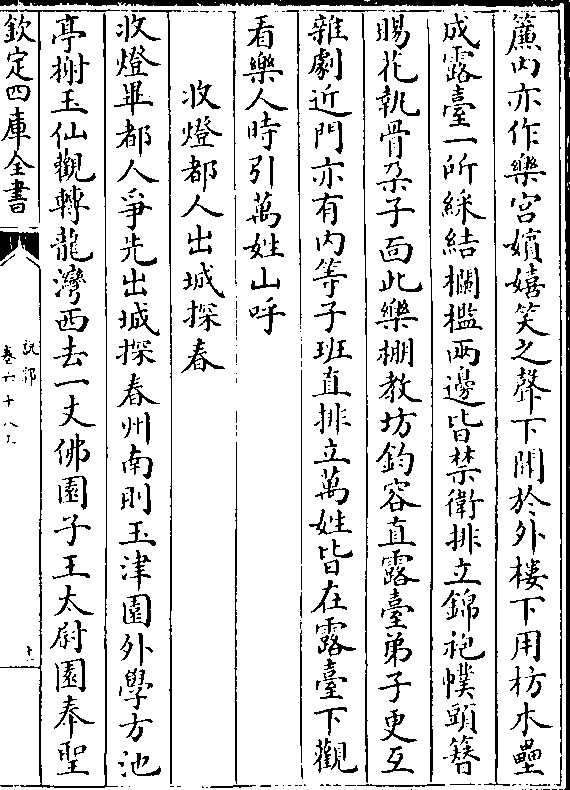 簾内亦作樂宮嬪嬉笑之聲下聞於外樓下用枋木壘
成露臺一所綵結欄檻兩邊皆禁衛排立錦袍幞頭簪
賜花執骨朶子面此樂棚教坊鈞容直露臺弟子更互
雜劇近門亦有内等子班直排立萬姓皆在露臺下觀
看樂人時引萬姓山呼
收燈都人出城探春
收燈畢都人爭先出城探春州南則玉津園外學方池
亭榭玉仙觀轉龍灣西去一丈佛園子王太尉園奉聖
欽定四庫全書
説郛
卷六十八上
十